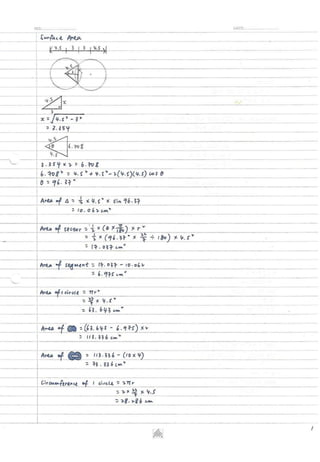 NO.
DATE.
Surface Area
4.5 3 3 4.5
4.5
3
4.5 x
3
x = √4.5² - 3²
= 3.354
4.5
θ 6.708
4.5
3.354 x 2 = 6.708
6.708² = 4.5² + 4.5² - 2(4.5)(4.5) cos θ
θ = 96.37°
Area of Δ = 1/2 x 4.5² x sin 96.37
= 10.062 cm²
Area of sector = 1/2 x (θ x π/180) x r²
= 1/2 x (96.37° x 22/7 ÷ 180) x 4.5²
= 17.037 cm²
Area of segment = 17.037 - 10.062
= 6.975 cm²
Area of 1 circle = πr²
= 22/7 x 4.5²
= 63.643 cm²
Area of = (63.643 - 6.975) x 2
= 113.336 cm²
Area of = 113.336 - (10 x 4)
= 73.336 cm²
Circumference of 1 circle = 2πr
= 2 x 22/7 x 4.5
= 28.286 cm
1